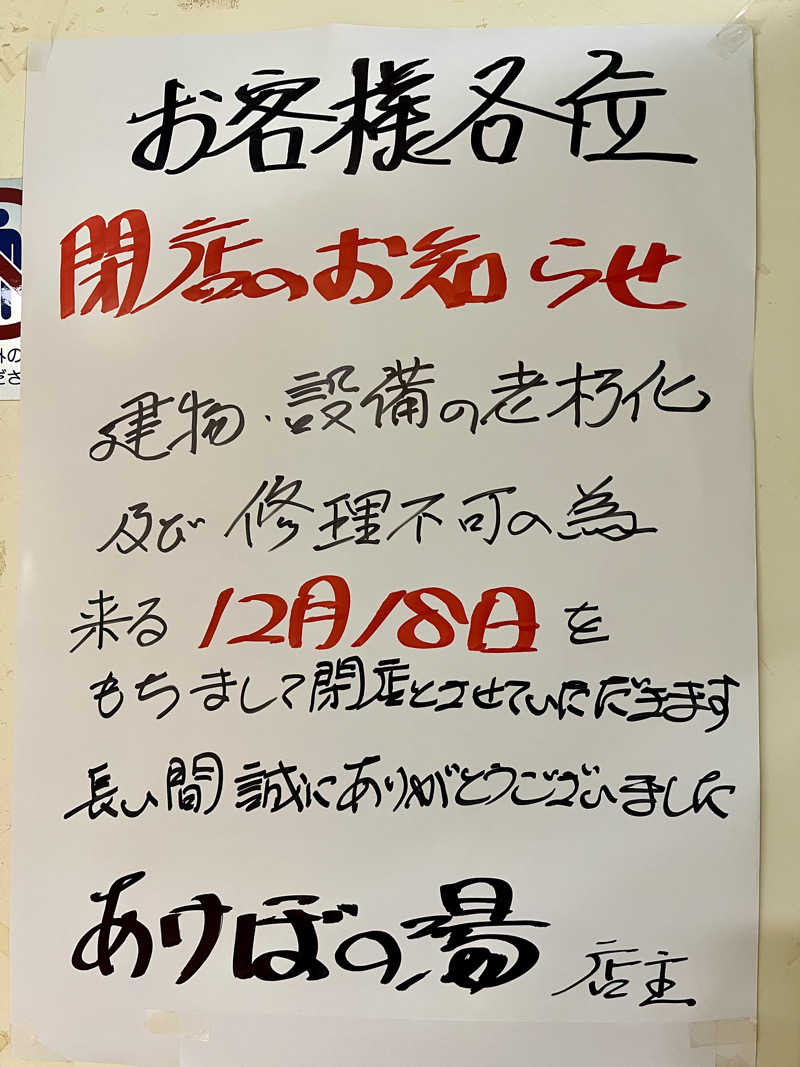 お客様各位
閉店のお知らせ
建物・設備の老朽化
及び修理不可の為
来る12月18日を
もちまして閉店とさせていただきます
長い間誠にありがとうございました
あけぼの湯 店主
外の
ださ